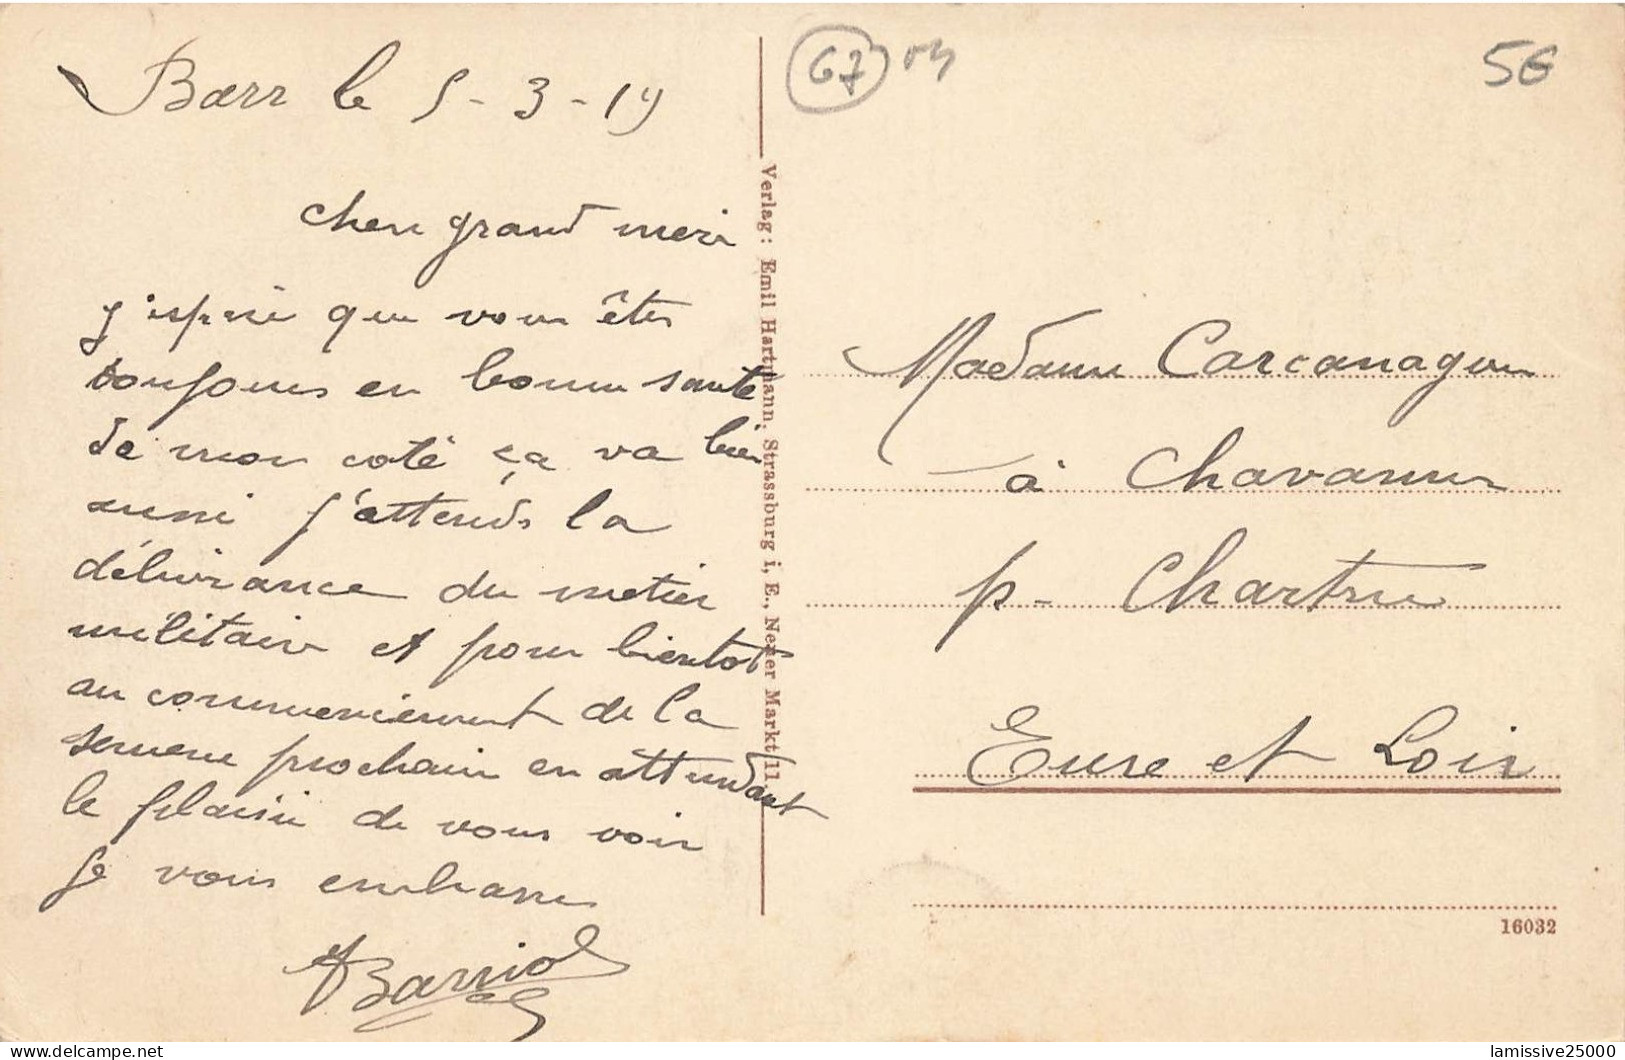 Barr le 5-3-19
67 04
5€
cher grand mere
j'espère que vous êtes
toujours en bonne santé
de mon coté ça va bien
aussi j'attends la
délivrance du metier
militaire et pour bientot
au commencement de la
semene prochain en attendant
le plaisir de vous voir
je vous embrasse
Barriol
Verlag: Emil Hartmann, Strassburg i. E., Neuer Markt 11
Madame Carcanague
à Chavannes
p- Chartres
Eure et Loir
16032
lamissive25000